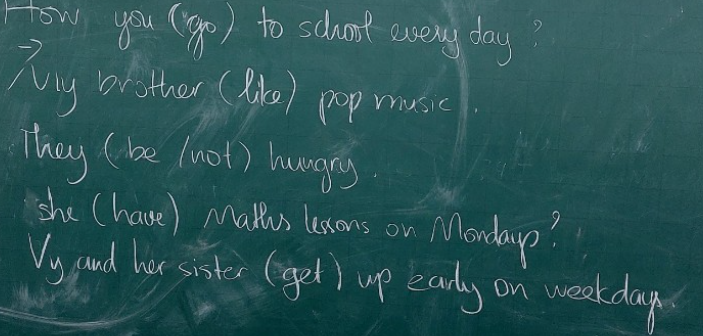 How you (go) to school every day ?
→ My brother (like) pop music .
They (be /not) hungry .
she (have) Maths lessons on Mondays?
Vy and her sister (get) up early on weekdays.